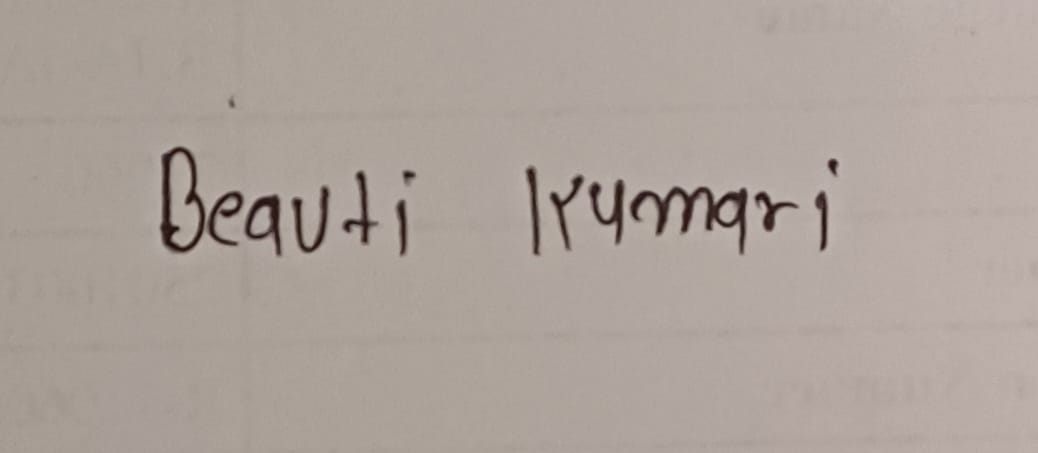 Beauti Kumari